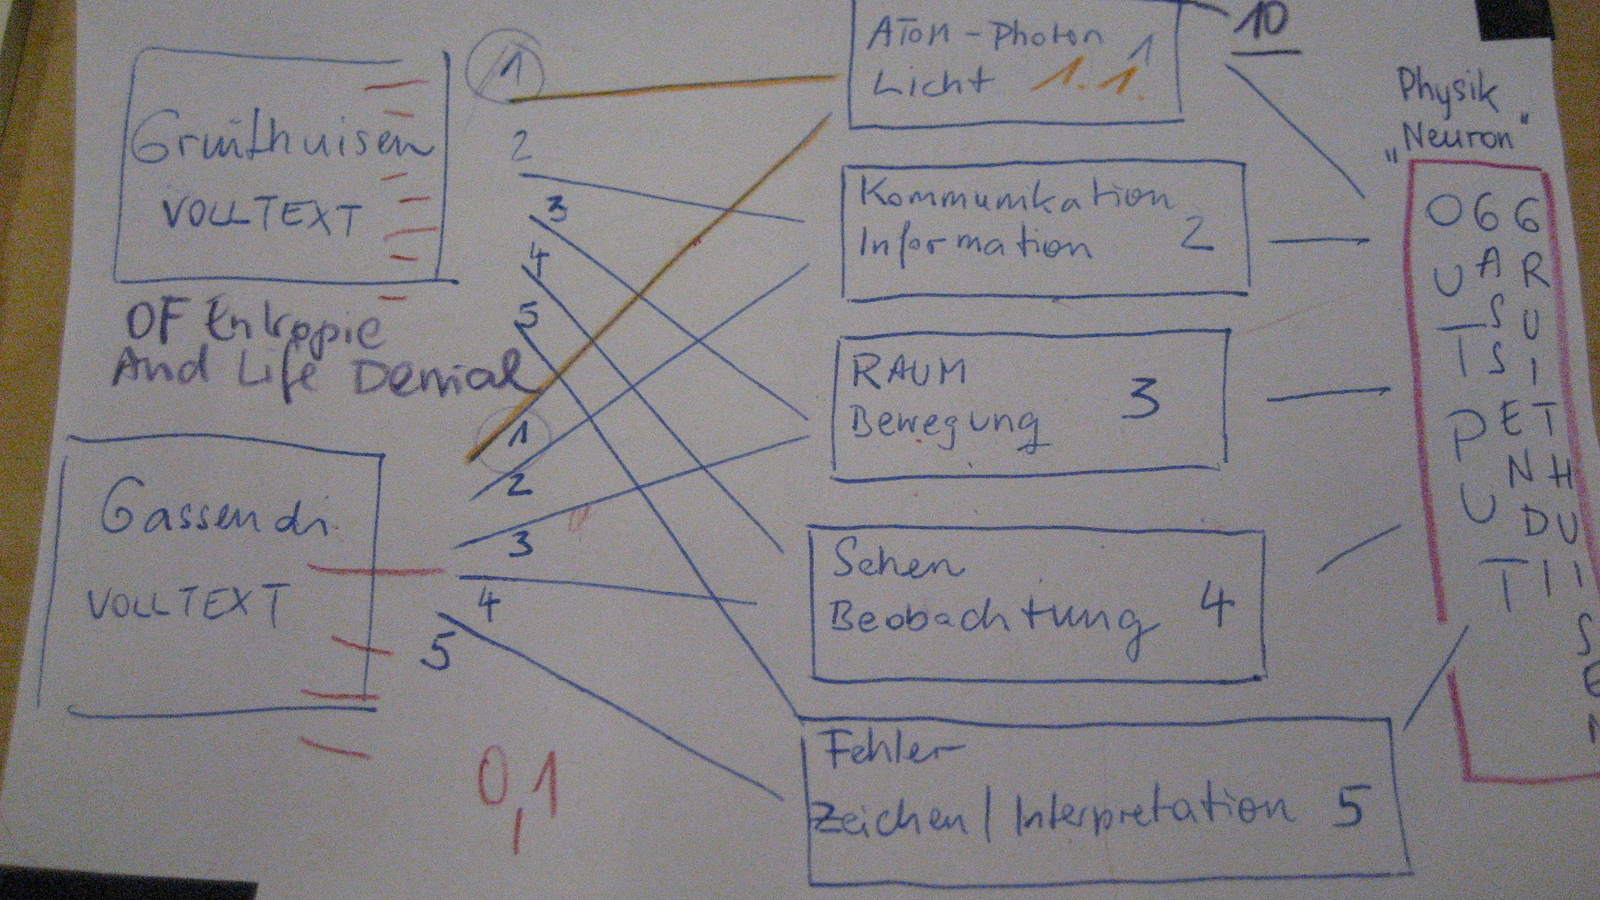 Gruithuisen
VOLLTEXT
OF Entropie
And Life Denial
Gassendi
VOLLTEXT
0,1
1
2
3
4
5
1
2
3
4
5
ATOM - Photon 1
Licht 1.1.
Kommunikation
Information 2
RAUM
Bewegung 3
Sehen
Beobachtung 4
Fehler
Zeichen / Interpretation 5
10
Physik
„Neuron"
OUTPUT
GASSENDI
GRUITHUISEN